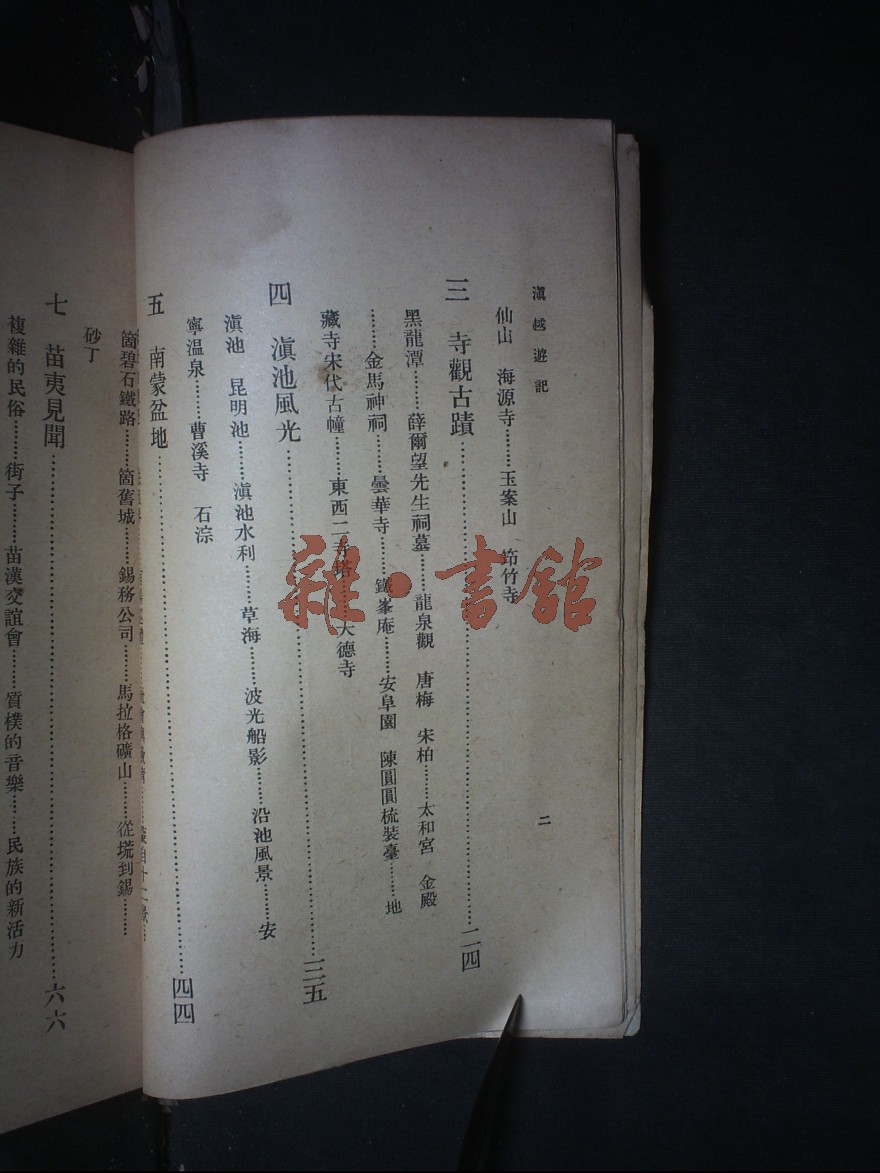 滇越遊記
二
仙山　海源寺………玉案山　筇竹寺
三　寺觀古蹟………二四
黑龍潭………薛爾望先生祠墓………龍泉觀　唐梅　宋柏………太和宮　金殿
………金馬神祠………曇華寺………鐵峯庵………安阜園　陳圓圓梳裝臺………地
藏寺宋代古幢………東西二寺塔………大德寺
四　滇池風光………三五
滇池　昆明池………滇池水利………草海………波光船影………沿池風景………安
寧溫泉………曹溪寺　石淙
五　南蒙盆地………四四
箇碧石鐵路………箇舊城………錫務公司………馬拉格礦山………從𡎚到錫………
砂丁
七　苗夷見聞………六六
複雜的民俗………街子………苗漢交誼會………質樸的音樂………民族的新活力
雜·書館